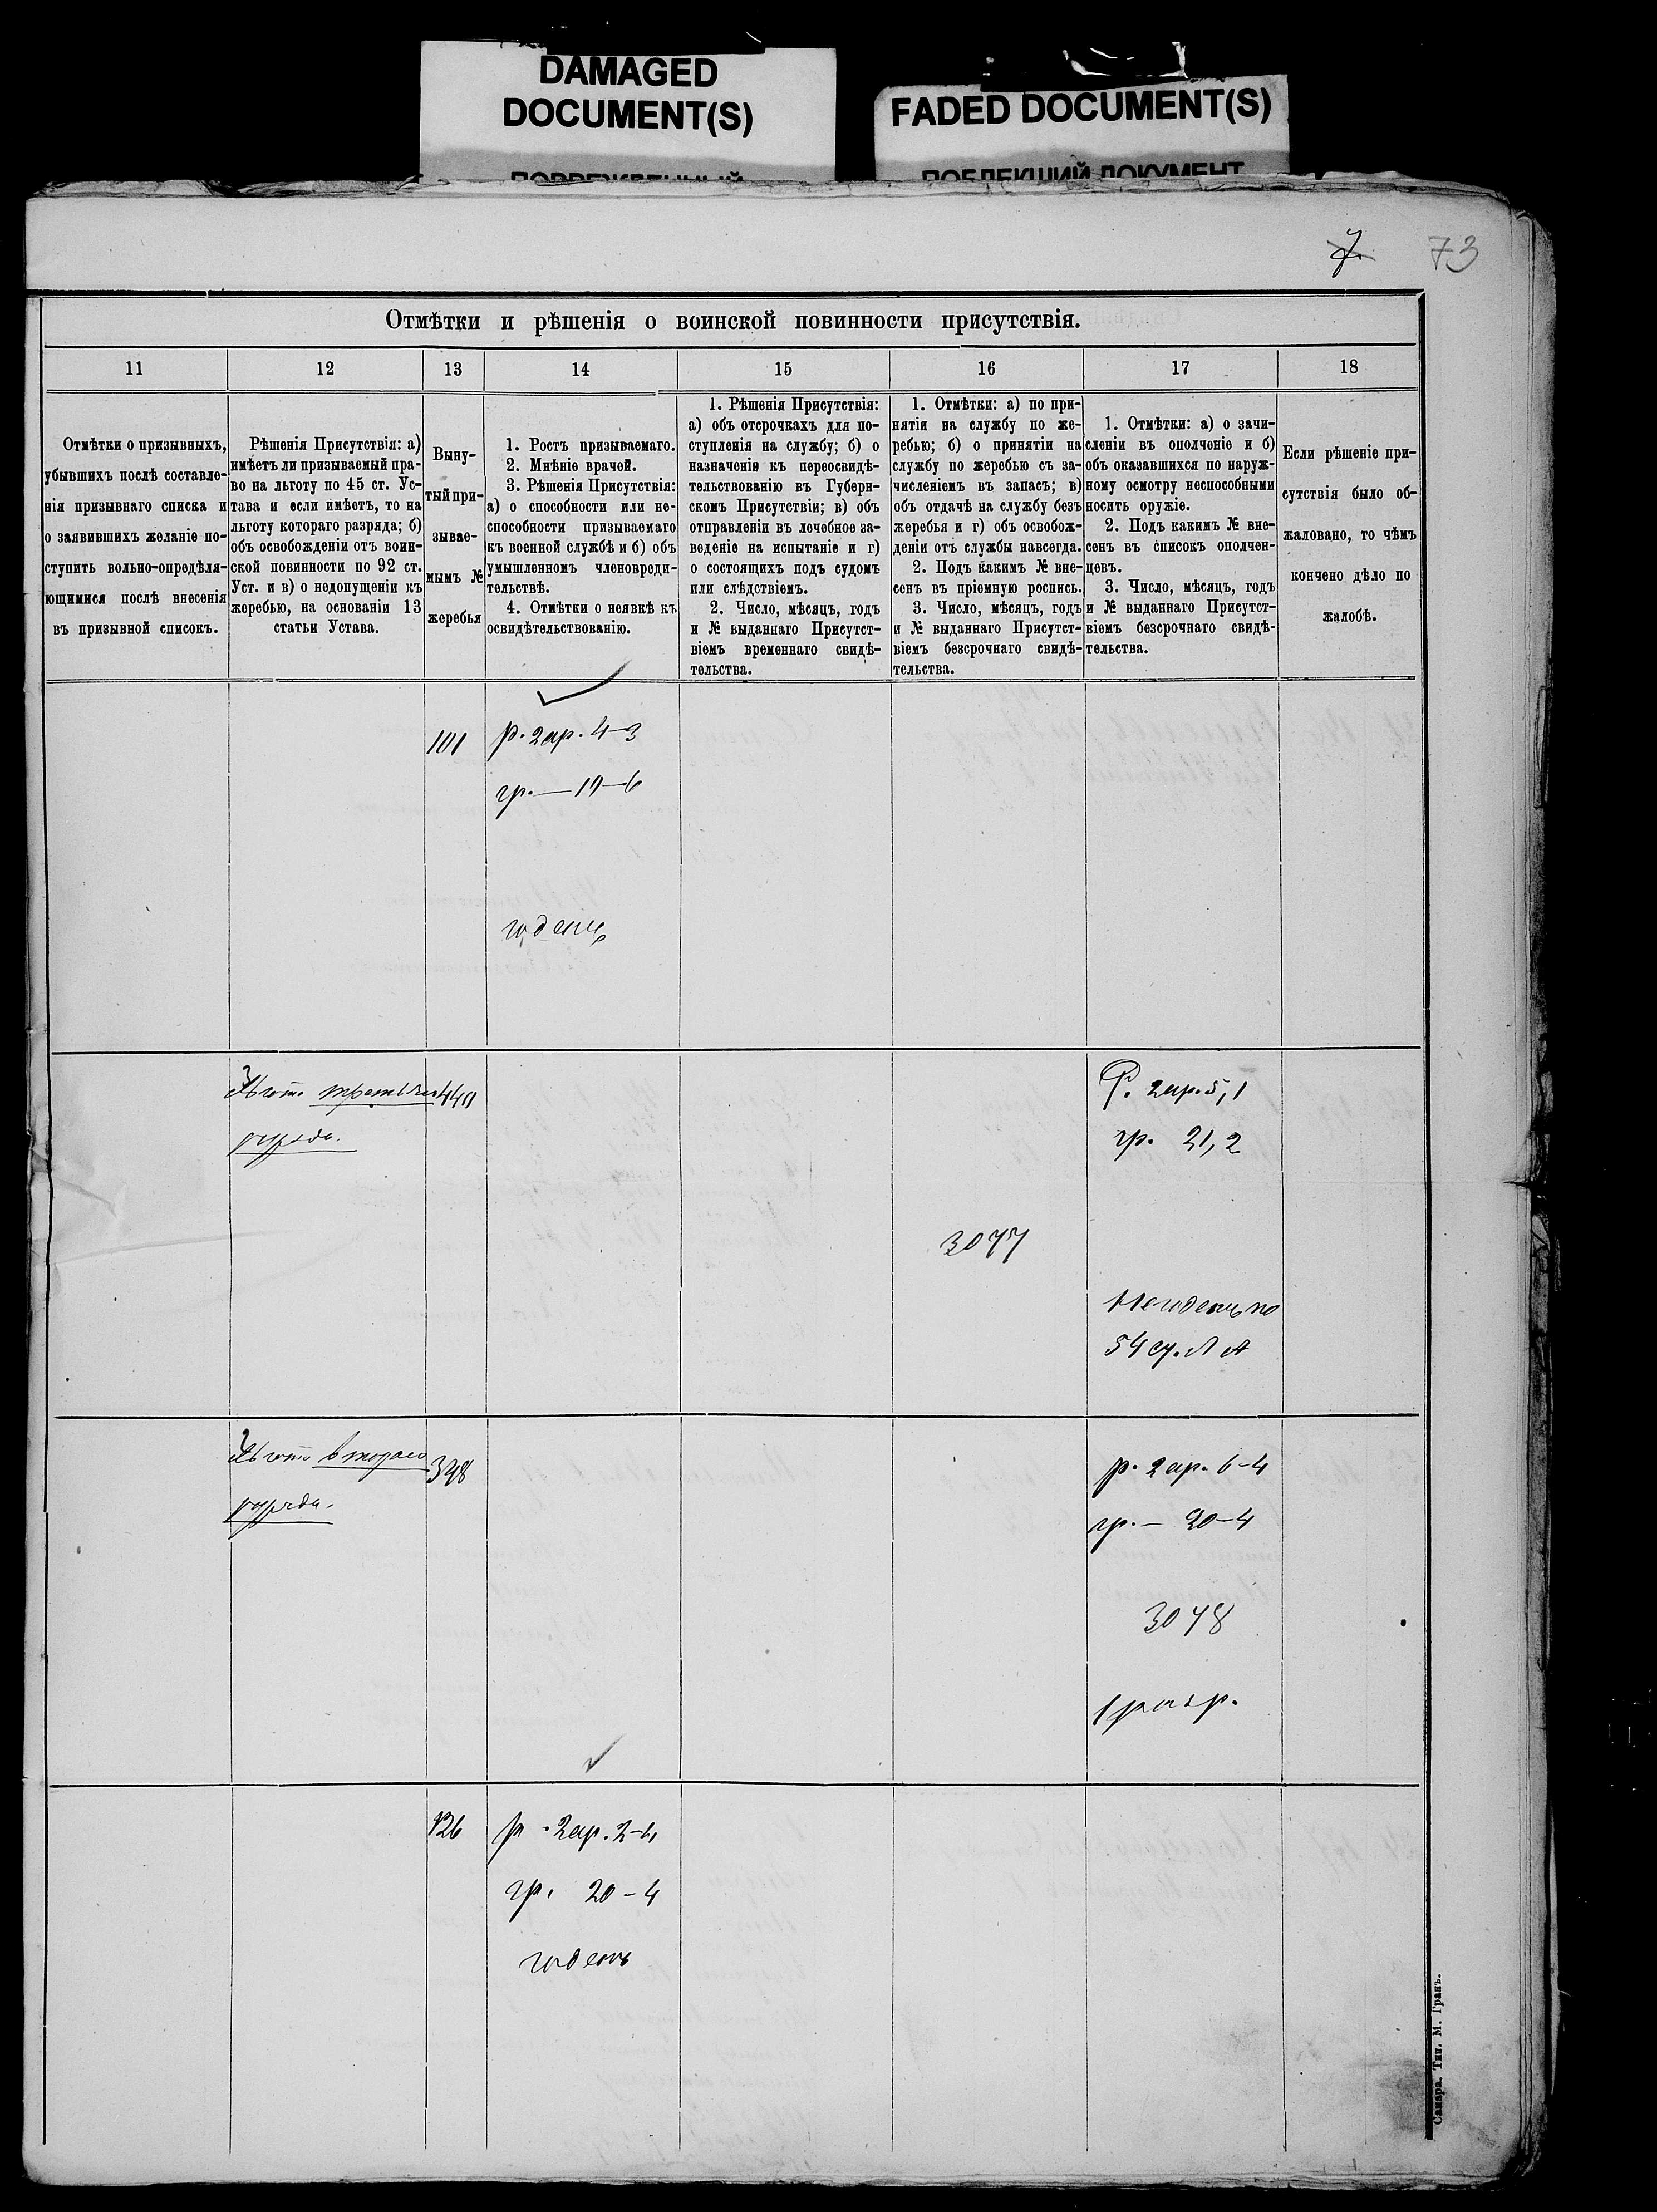 DAMAGED
DOCUMENT(S)
FADED DOCUMENT(S)
7. 73
Отмѣтки и рѣшенія о воинской повинности присутствія.
11 12 13 14 15 16 17 18
Отмѣтки о призывныхъ,
убывшихъ послѣ составле-
нія призывнаго списка и
о заявившихъ желаніе по-
ступить вольно-опредѣля-
ющимися послѣ внесенія
въ призывной списокъ.
Рѣшенія Присутствія: а)
имѣетъ ли призываемый пра-
во на льготу по 45 ст. Ус-
тава и если имѣетъ, то на
льготу котораго разряда; б)
объ освобожденіи отъ воин-
ской повинности по 92 ст.
Уст. и в) о недопущеніи къ
жеребью, на основаніи 13
статьи Устава.
Выну-
тый при-
зывае-
мымъ №
жеребья
1. Ростъ призываемаго.
2. Мнѣніе врачей.
3. Рѣшенія Присутствія:
а) о способности или не-
способности призываемаго
къ военной службѣ и б) объ
умышленномъ членовреди-
тельствѣ.
4. Отмѣтки о неявкѣ къ
освидѣтельствованію.
1. Рѣшенія Присутствія:
а) объ отсрочкахъ для по-
ступленія на службу; б) о
назначеніи къ переосвидѣ-
тельствованію въ Губерн-
скомъ Присутствіи; в) объ
отправленіи въ лечебное за-
веденіе на испытаніе и г)
о состоящихъ подъ судомъ
или слѣдствіемъ.
2. Число, мѣсяцъ, годъ
и № выданнаго Присутст-
віемъ временнаго свидѣ-
тельства.
1. Отмѣтки: а) по при-
нятіи на службу по же-
ребью; б) о принятіи на
службу по жеребью съ за-
численіемъ въ запасъ; в)
объ отдачѣ на службу безъ
жеребья и г) объ освобож-
деніи отъ службы навсегда.
2. Подъ какимъ № вне-
сенъ въ пріемную роспись.
3. Число, мѣсяцъ, годъ
и № выданнаго Присутст-
віемъ безсрочнаго свидѣ-
тельства.
1. Отмѣтки: а) о зачи-
сленіи въ ополченіе и б)
объ оказавшихся по наруж-
ному осмотру неспособными
носить оружіе.
2. Подъ какимъ № вне-
сенъ въ списокъ ополчен-
цевъ.
3. Число, мѣсяцъ, годъ
и № выданнаго Присутст-
віемъ безсрочнаго свидѣ-
тельства.
Если рѣшеніе при-
сутствія было об-
жаловано, то чѣмъ
кончено дѣло по
жалобѣ.
101
р. 2 ар. 4-3
гр. — 19-6
годенъ
третьяго
разряда.
Р. 2 ар. 5,1
гр. 21,2
3077
Негоденъ по
54 ст. Л А
втораго
разряда.
348
р. 2 ар. 6-4
гр. — 20-4
3078
1 разр.
126
р. 2 ар. 2-4
гр. 20-4
годенъ
Самара. Тип. М. Гранъ.